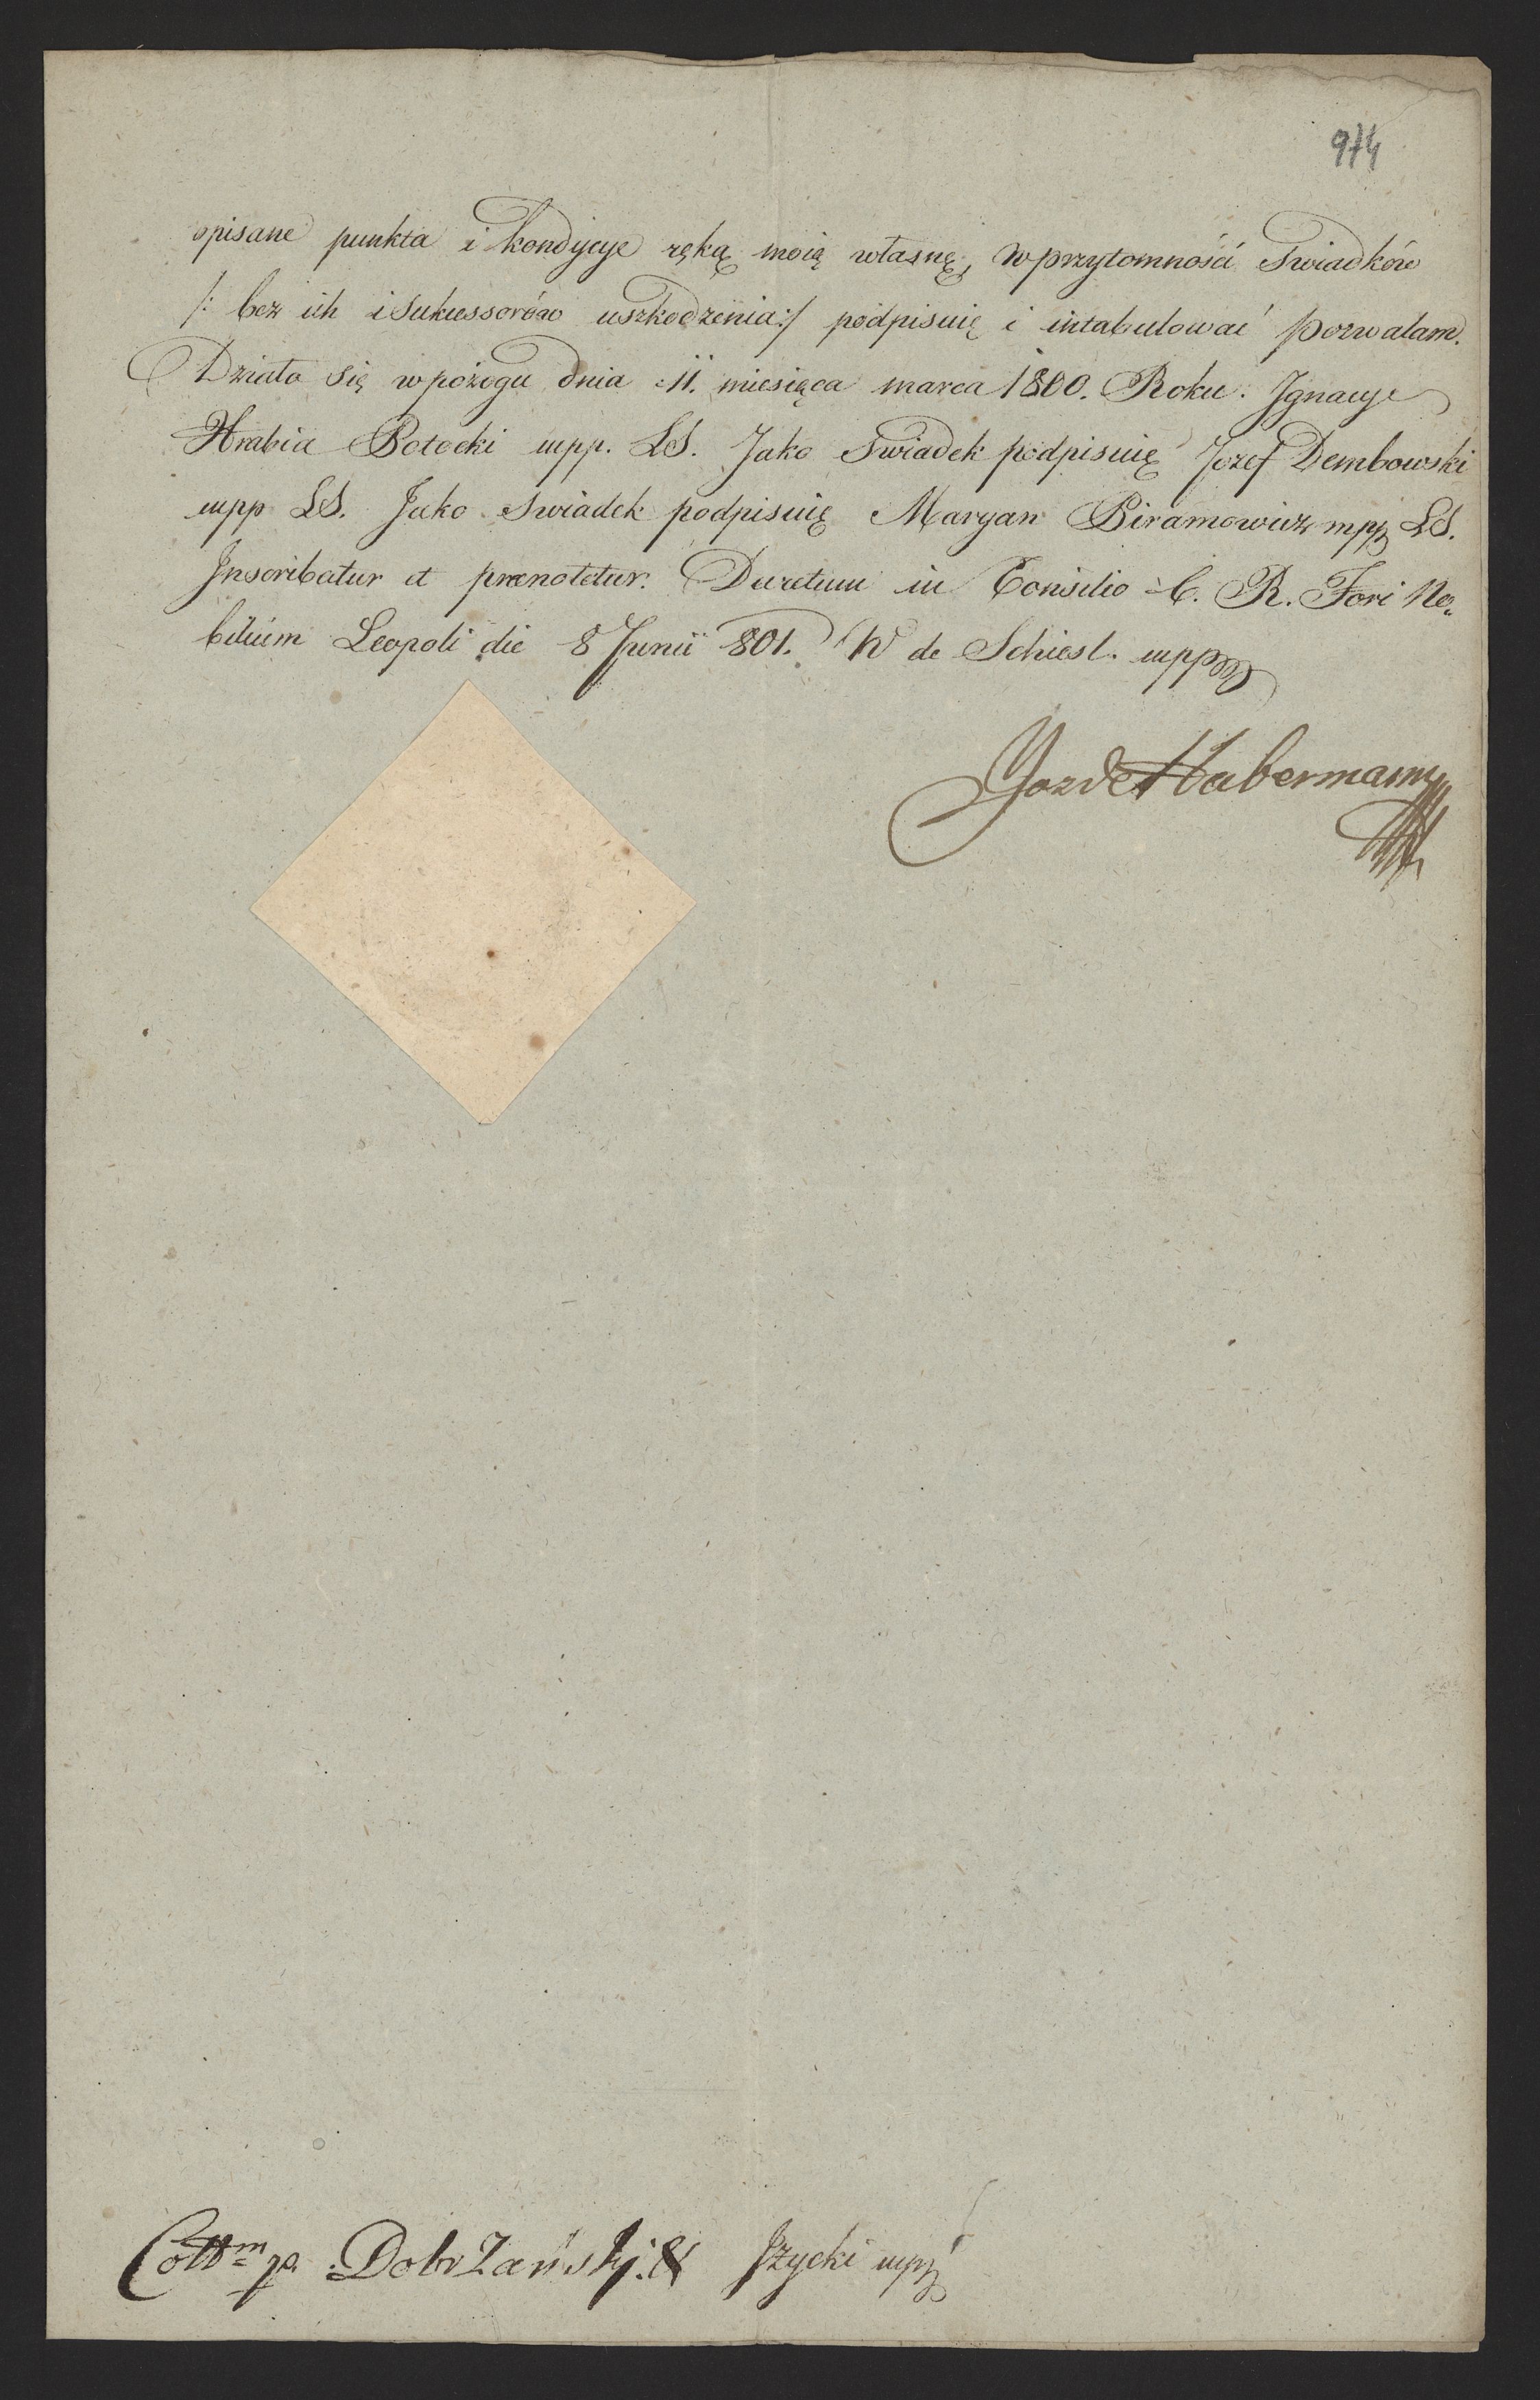 974
opisane punkta i kondycye ręką moią własną, w przytomności Swiadków
/: bez ich i Sukcessorów uszkodzenia:/ podpisuię i intabulować pozwalam.
Działo się w pożogu dnia 11. miesiąca marca 1800. Roku. Jgnacye
Hrabia Potocki mpp. LS. Jako Swiadek podpisuię Jozef Dembowski
mpp LS. Jako swiadek podpisuię Maryan Piramowicz mpp LS.
Jnscribatur et prænotetur. Decretum in Consilio C. R. Fori No=
bilium Leopoli die 8 Junii 801. W de Schiesl. mpp
Habermann
Collm p. Dobrzański. & Jzycki mpp